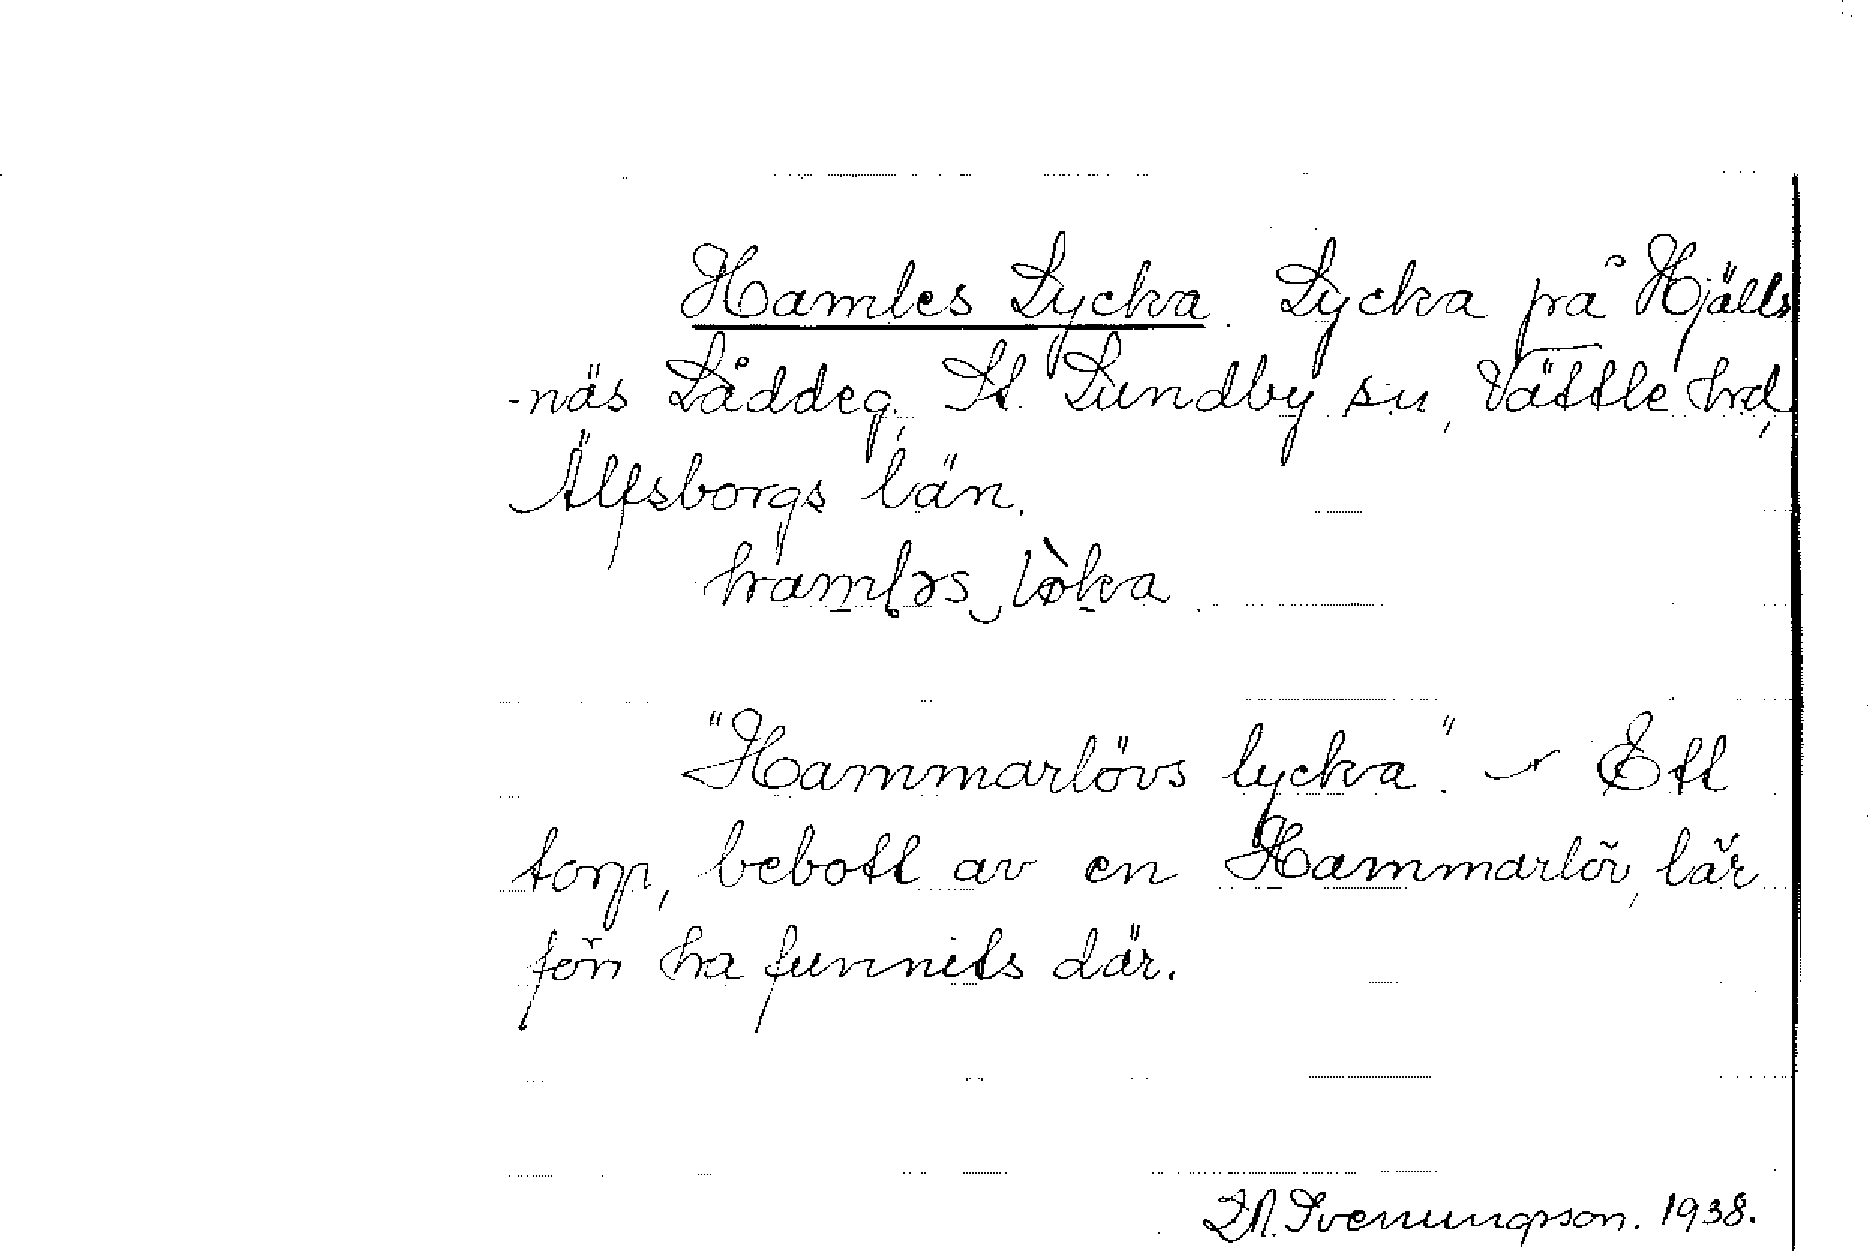 Hamles Lycka. Lycka på Hjälls
-näs Låddeg, St. Lundby sn, Vättle hrd,
Älfsborgs län.
hamləs lø̀ka
"Hammarlövs lycka". – Ett
torp, bebott av en Hammarlöv, lär
förr ha funnits där.
Svenungson. 1938.